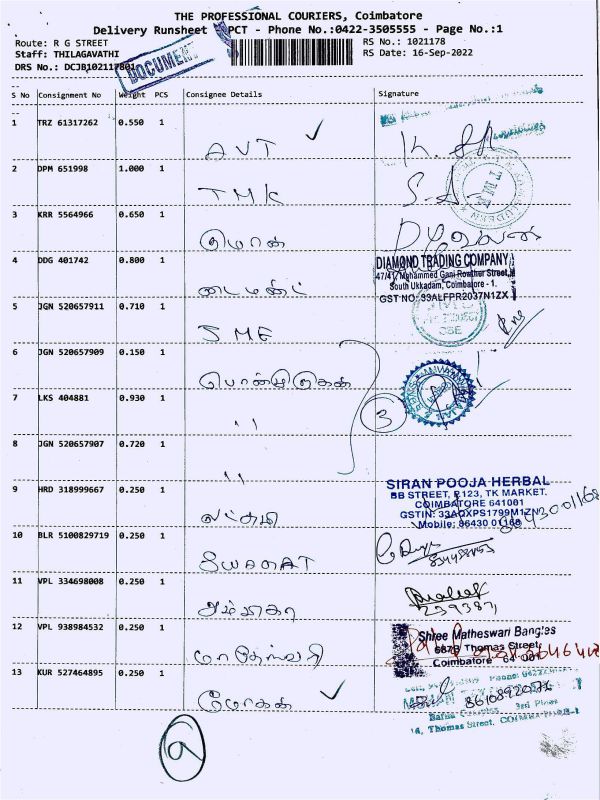 THE PROFESSIONAL COURIERS, Coimbatore
Delivery Runsheet PCT - Phone No.:0422-3505555 - Page No.:1
Route: R G STREET RS No.: 1021178
Staff: THILAGAVATHI RS Date: 16-Sep-2022
DRS No.: DCJB102117801
DOCUMENT
S No Consignment No Weight PCS Consignee Details Signature
1 TRZ 61317262 0.550 1 AVT
2 DPM 651998 1.000 1 TMK
3 KRR 5564966 0.650 1
4 DDG 401742 0.800 1 டைமண்ட்
DIAMOND TRADING COMPANY
47/41, Mohammed Gani Rowther Street,
South Ukkadam, Coimbatore - 1.
GST NO: 33ALFPR2037N1ZX
5 JGN 520657911 0.710 1 SME
6 JGN 520657909 0.150 1
7 LKS 404881 0.930 1 ,, 3
8 JGN 520657907 0.720 1 ,,
SIRAN POOJA HERBAL
BB STREET, P.123, TK MARKET.
COIMBATORE 641001
GSTIN: 33AQXPS1799M1ZN
Mobile: 86430 01168
9 HRD 318999667 0.250 1 லட்சுமி
10 BLR 5100829719 0.250 1 SWAGAT
11 VPL 334698008 0.250 1 அம்பிகா
239387
12 VPL 938984532 0.250 1 மாதேஸ்வரி
Shree Matheswari Bangles
687B Thomas Street,
Coimbatore
13 KUR 527464895 0.250 1
8610892072
3rd Floor
Thomas Street, COIMBATORE-1
9